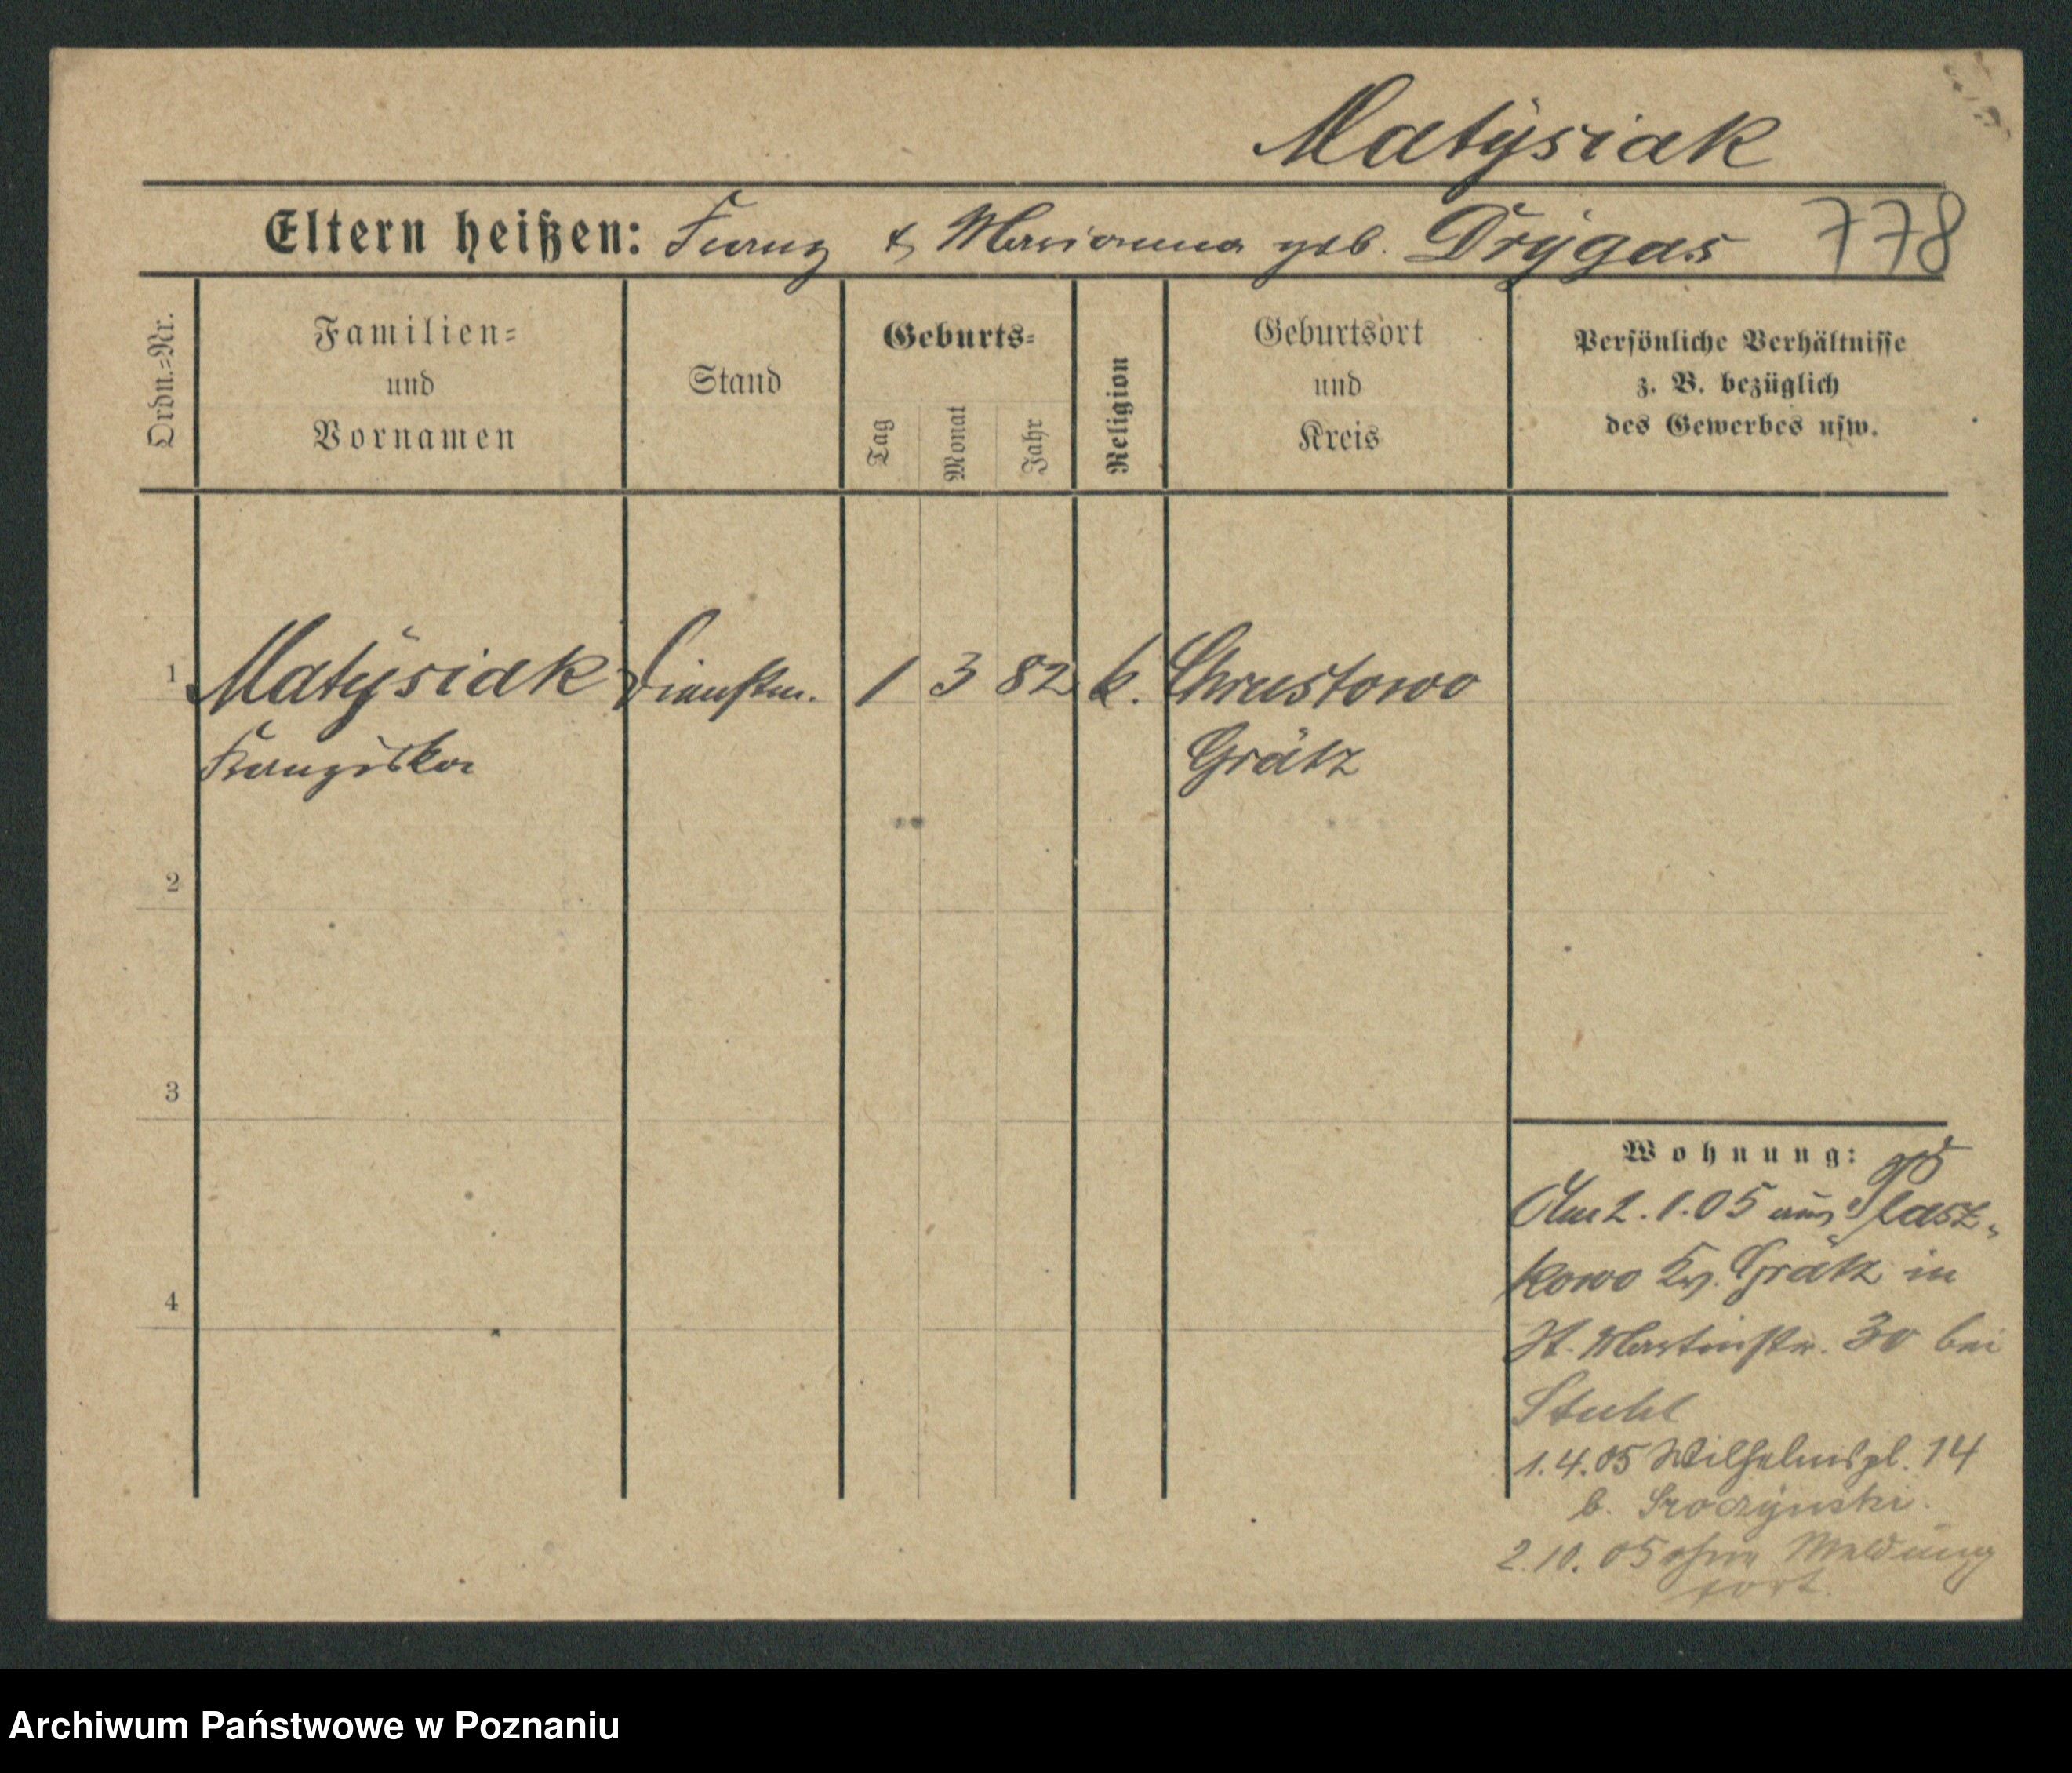 Matÿsiak
Eltern heißen: Franz & Marianna geb. Drÿgas 778
Ordn.=Nr.
Familien=
und
Vornamen
Stand
Geburts=
Tag
Monat
Jahr
Religion
Geburtsort
und
Kreis
Persönliche Verhältnisse
z. B. bezüglich
des Gewerbes usw.
1 Matÿsiak Dienstm. 1 3 82 k. Chrustowo
Franziska Grätz
2
3
4
Wohnung:
Am 2.1.05 aus Plasz-
kowo Kr. Grätz in
St. Martinstr. 30 bei
Stuhl
1.4.05 Wilhelmspl. 14
b. Sroczÿnski.
2.10.05 ohne Meldung
fort.
Archiwum Państwowe w Poznaniu